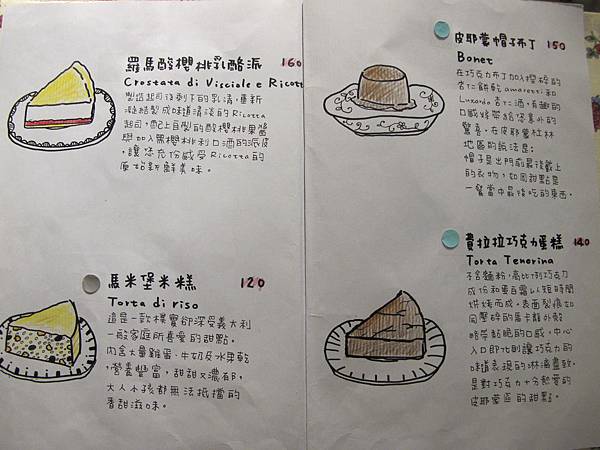 羅馬酸櫻桃乳酪派 160
Crostata di Visciole e Ricott
製造起司後剩下的乳清,重新
凝結製成味道清淡的Ricotta
起司,配上自製的酸櫻桃果醬
與加入黑櫻桃利口酒的派皮
,讓您充份感受Ricotta的
原始新鮮美味。
馬米堡米糕 120
Torta di riso
這是一款樸實卻深受義大利
一般家庭所喜愛的甜點。
內含大量雞蛋、牛奶及水果乾
,營養豐富,甜甜又濃郁,
大人小孩都無法抵擋的
香甜滋味。
皮耶蒙帽子布丁 150
Bonet
在巧克力布丁加入搗碎的
杏仁餅乾amaretti和
Luxardo杏仁酒,有趣的
口感將帶給您意外的
驚喜。在皮耶蒙杜林
地區的說法是:
帽子是出門前最後戴上
的衣物,如同甜點是
一餐當中最後吃的東西。
費拉拉巧克力蛋糕 140
Torta Tenerina
不含麵粉,高比例巧克力
成份和蛋白霜以短時間
烘烤而成。表面裂痕如
同壓碎的馬卡龍外殼
略帶黏肥的口感,中心
入口即化則讓巧克力的
味道表現的淋漓盡致,
是對巧克力十分熱愛的
皮耶蒙區的甜點。